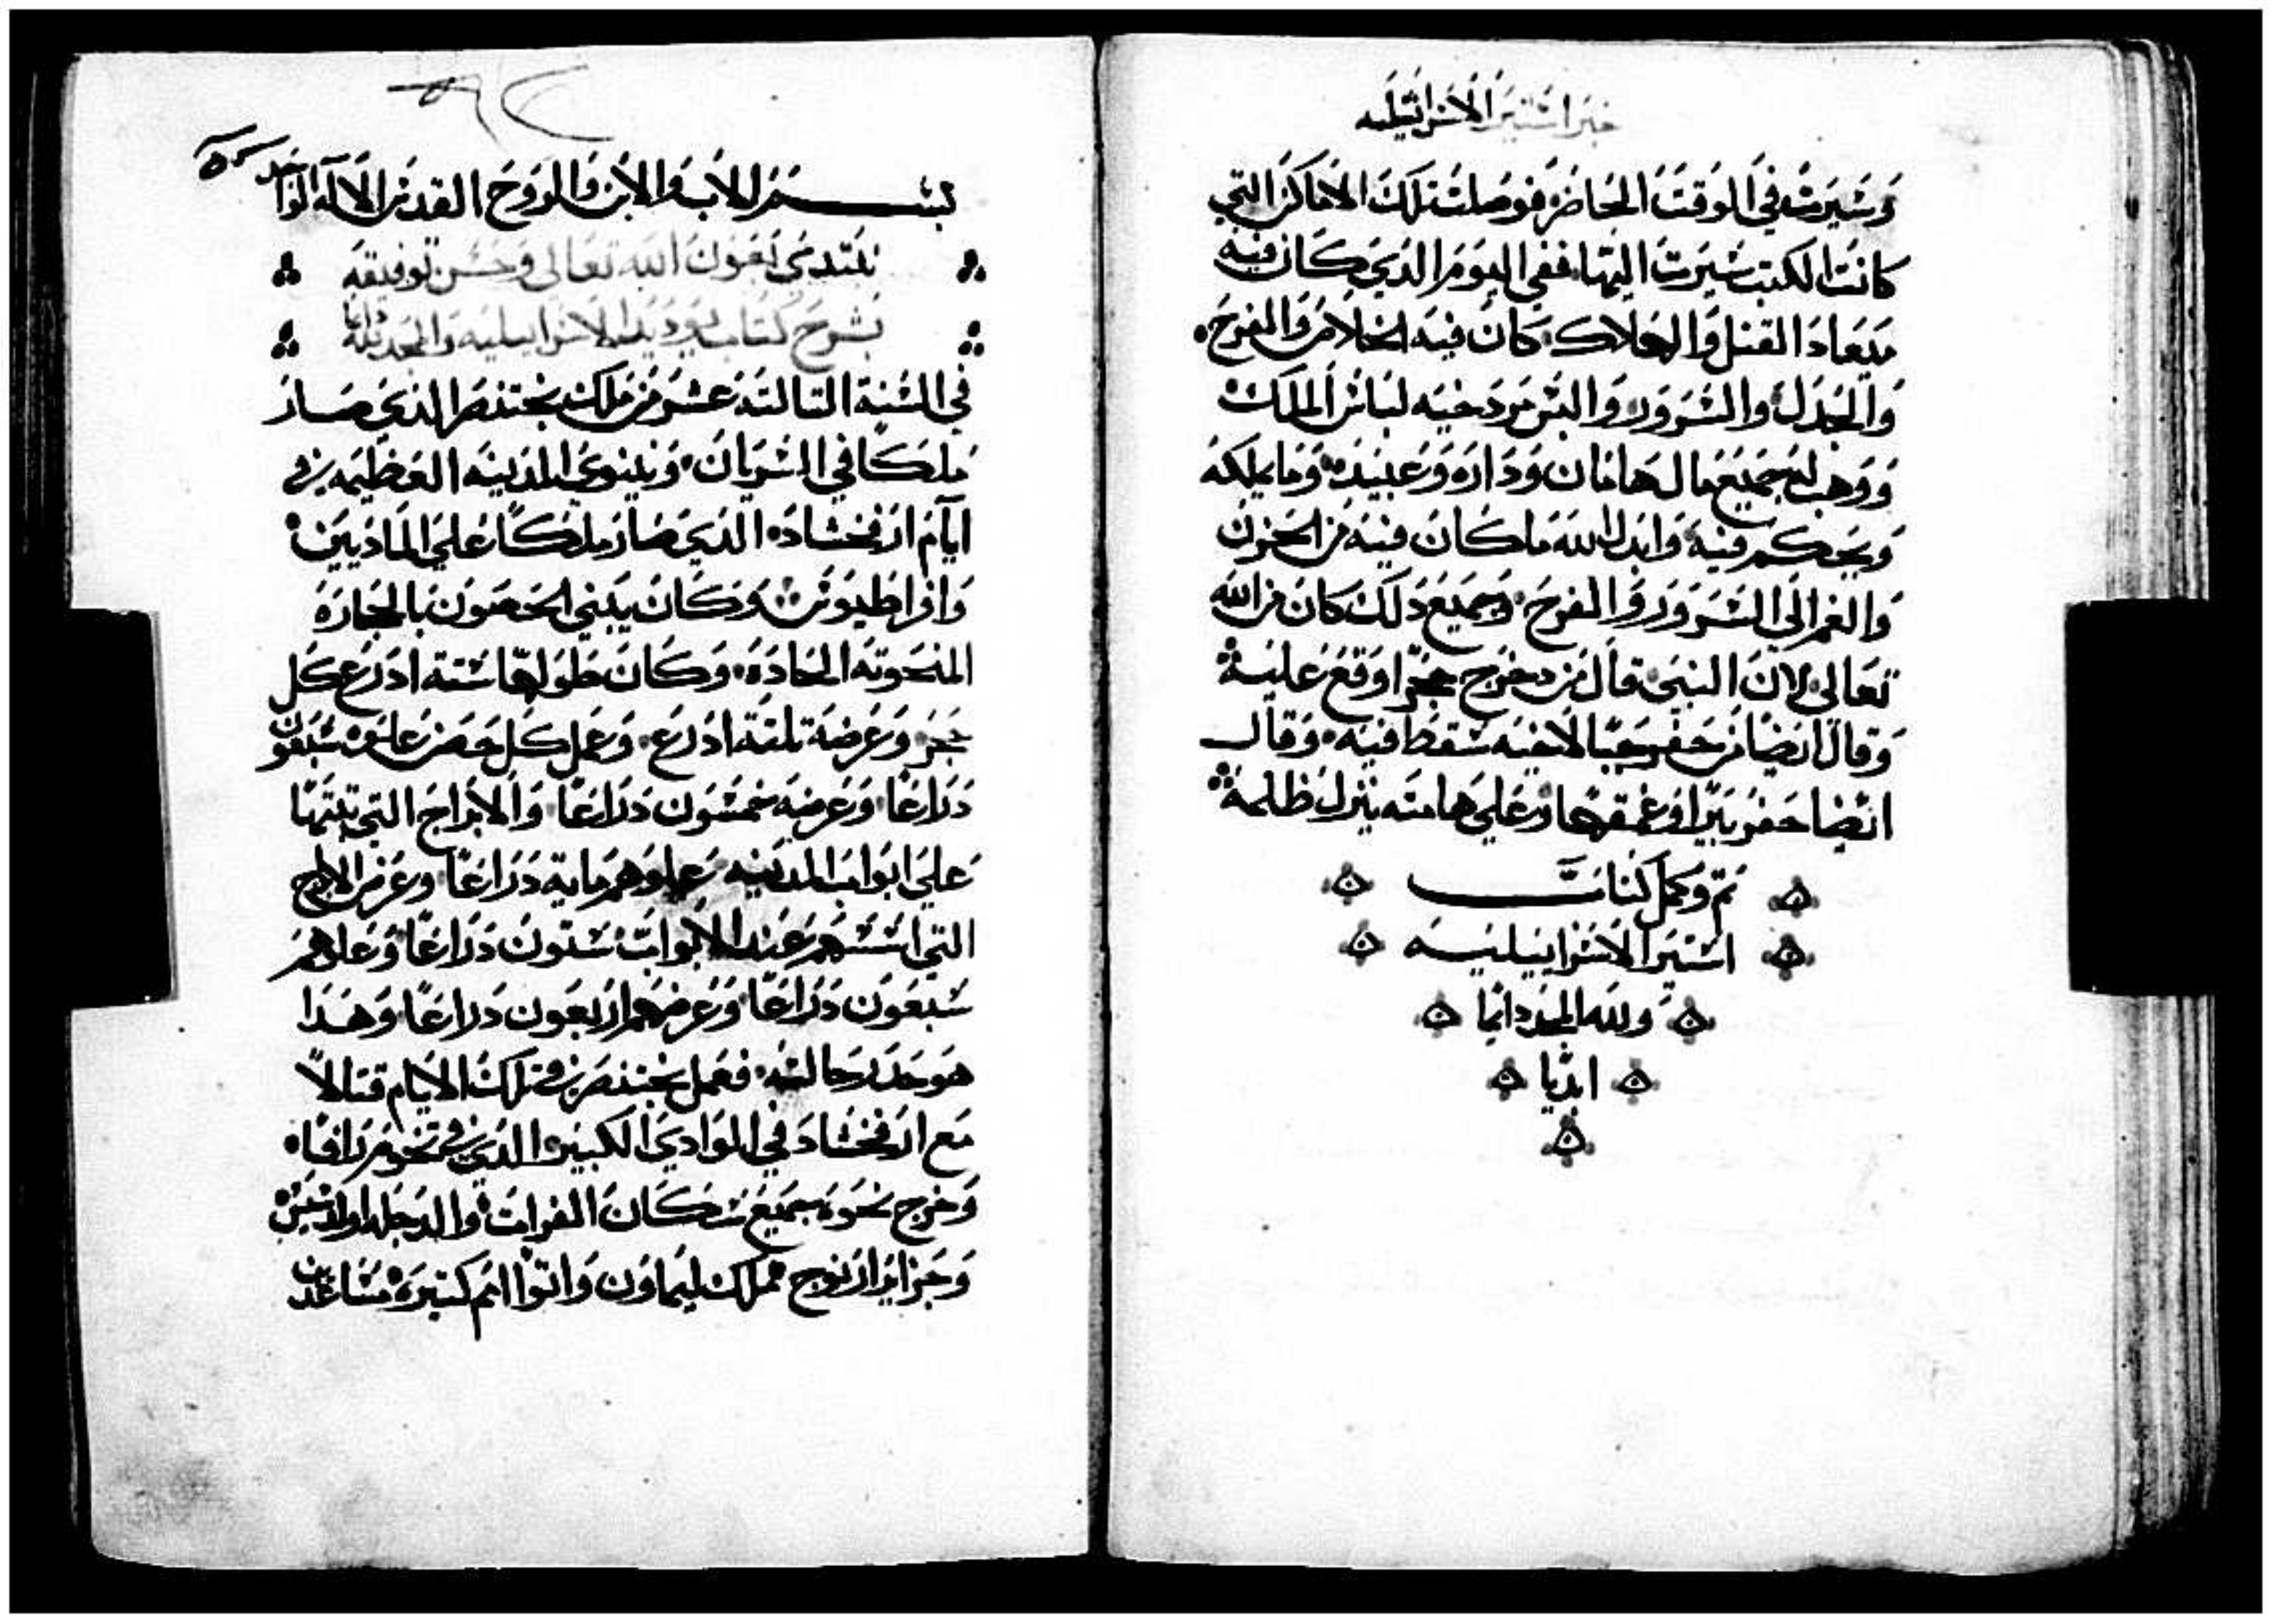 خبر استير الاسرائيليه
وسيرت في الوقت الحاضر فوصلت تلك الاماكن التي
كانت الكتب سيرت اليها ففي اليوم الذي كان فيه
ميعاد القتل والهلاك كان فيه الخلاص والفرح
والجدل والسرور والبس مردخيه لباس الملك
ووهب له جميع مال هامان وداره وعبيده وما يملكه
ويحكم فيه وابدل الله ما كان فيه من الحزن
والغم الي السرور والفرح وجميع ذلك كان من الله
تعالي لان النبي قال من دحرج حجرا وقع عليه
وقال ايضا من حفر جبا لاخيه سقط فيه وقال
ايضا حفر بيرا وعمقها وعلي هامته ينزل ظلمه
تم وكمل كتاب
استير الاسراييليه
ولله المجد دايما
ابديا
بسم الاب والابن والروح القدس الاله الواحد
نبتدي بعون الله تعالي وحسن توفيقه
بشرح كتاب يوديت الاسراييليه والمجد لله دايما
في السنة التالته عشر من ملك بختنصر الذي صار
ملكا في السريان ونينوي المدينه العظيمه في
ايام ارفخشاد الذي صار ملكا علي الماديين
وكان يبني الحصون بالحجاره
المنحوته الحاده وكان طولها ستة ادرع كل
حجر وعرضه تلتة ادرع وعمل كل حصن علوه سبعون
دراعا وعرضه خمسون دراعا والابراج التي بيتها
علي ابواب المدينه علوهم ماية دراعا وعرض الابراج
التي اسسهم عند الابواب ستون دراعا وعلوهم
سبعون دراعا وعرضهم اربعون دراعا وهدا
فعمل بختنصر في تلك الايام قتالا
مع ارفخشاد في الوادي الكبير الذي في تخوم رافا
وخرج نحوه جميع سكان الفرات والدجله
واتوا امم كتيره مساعدين